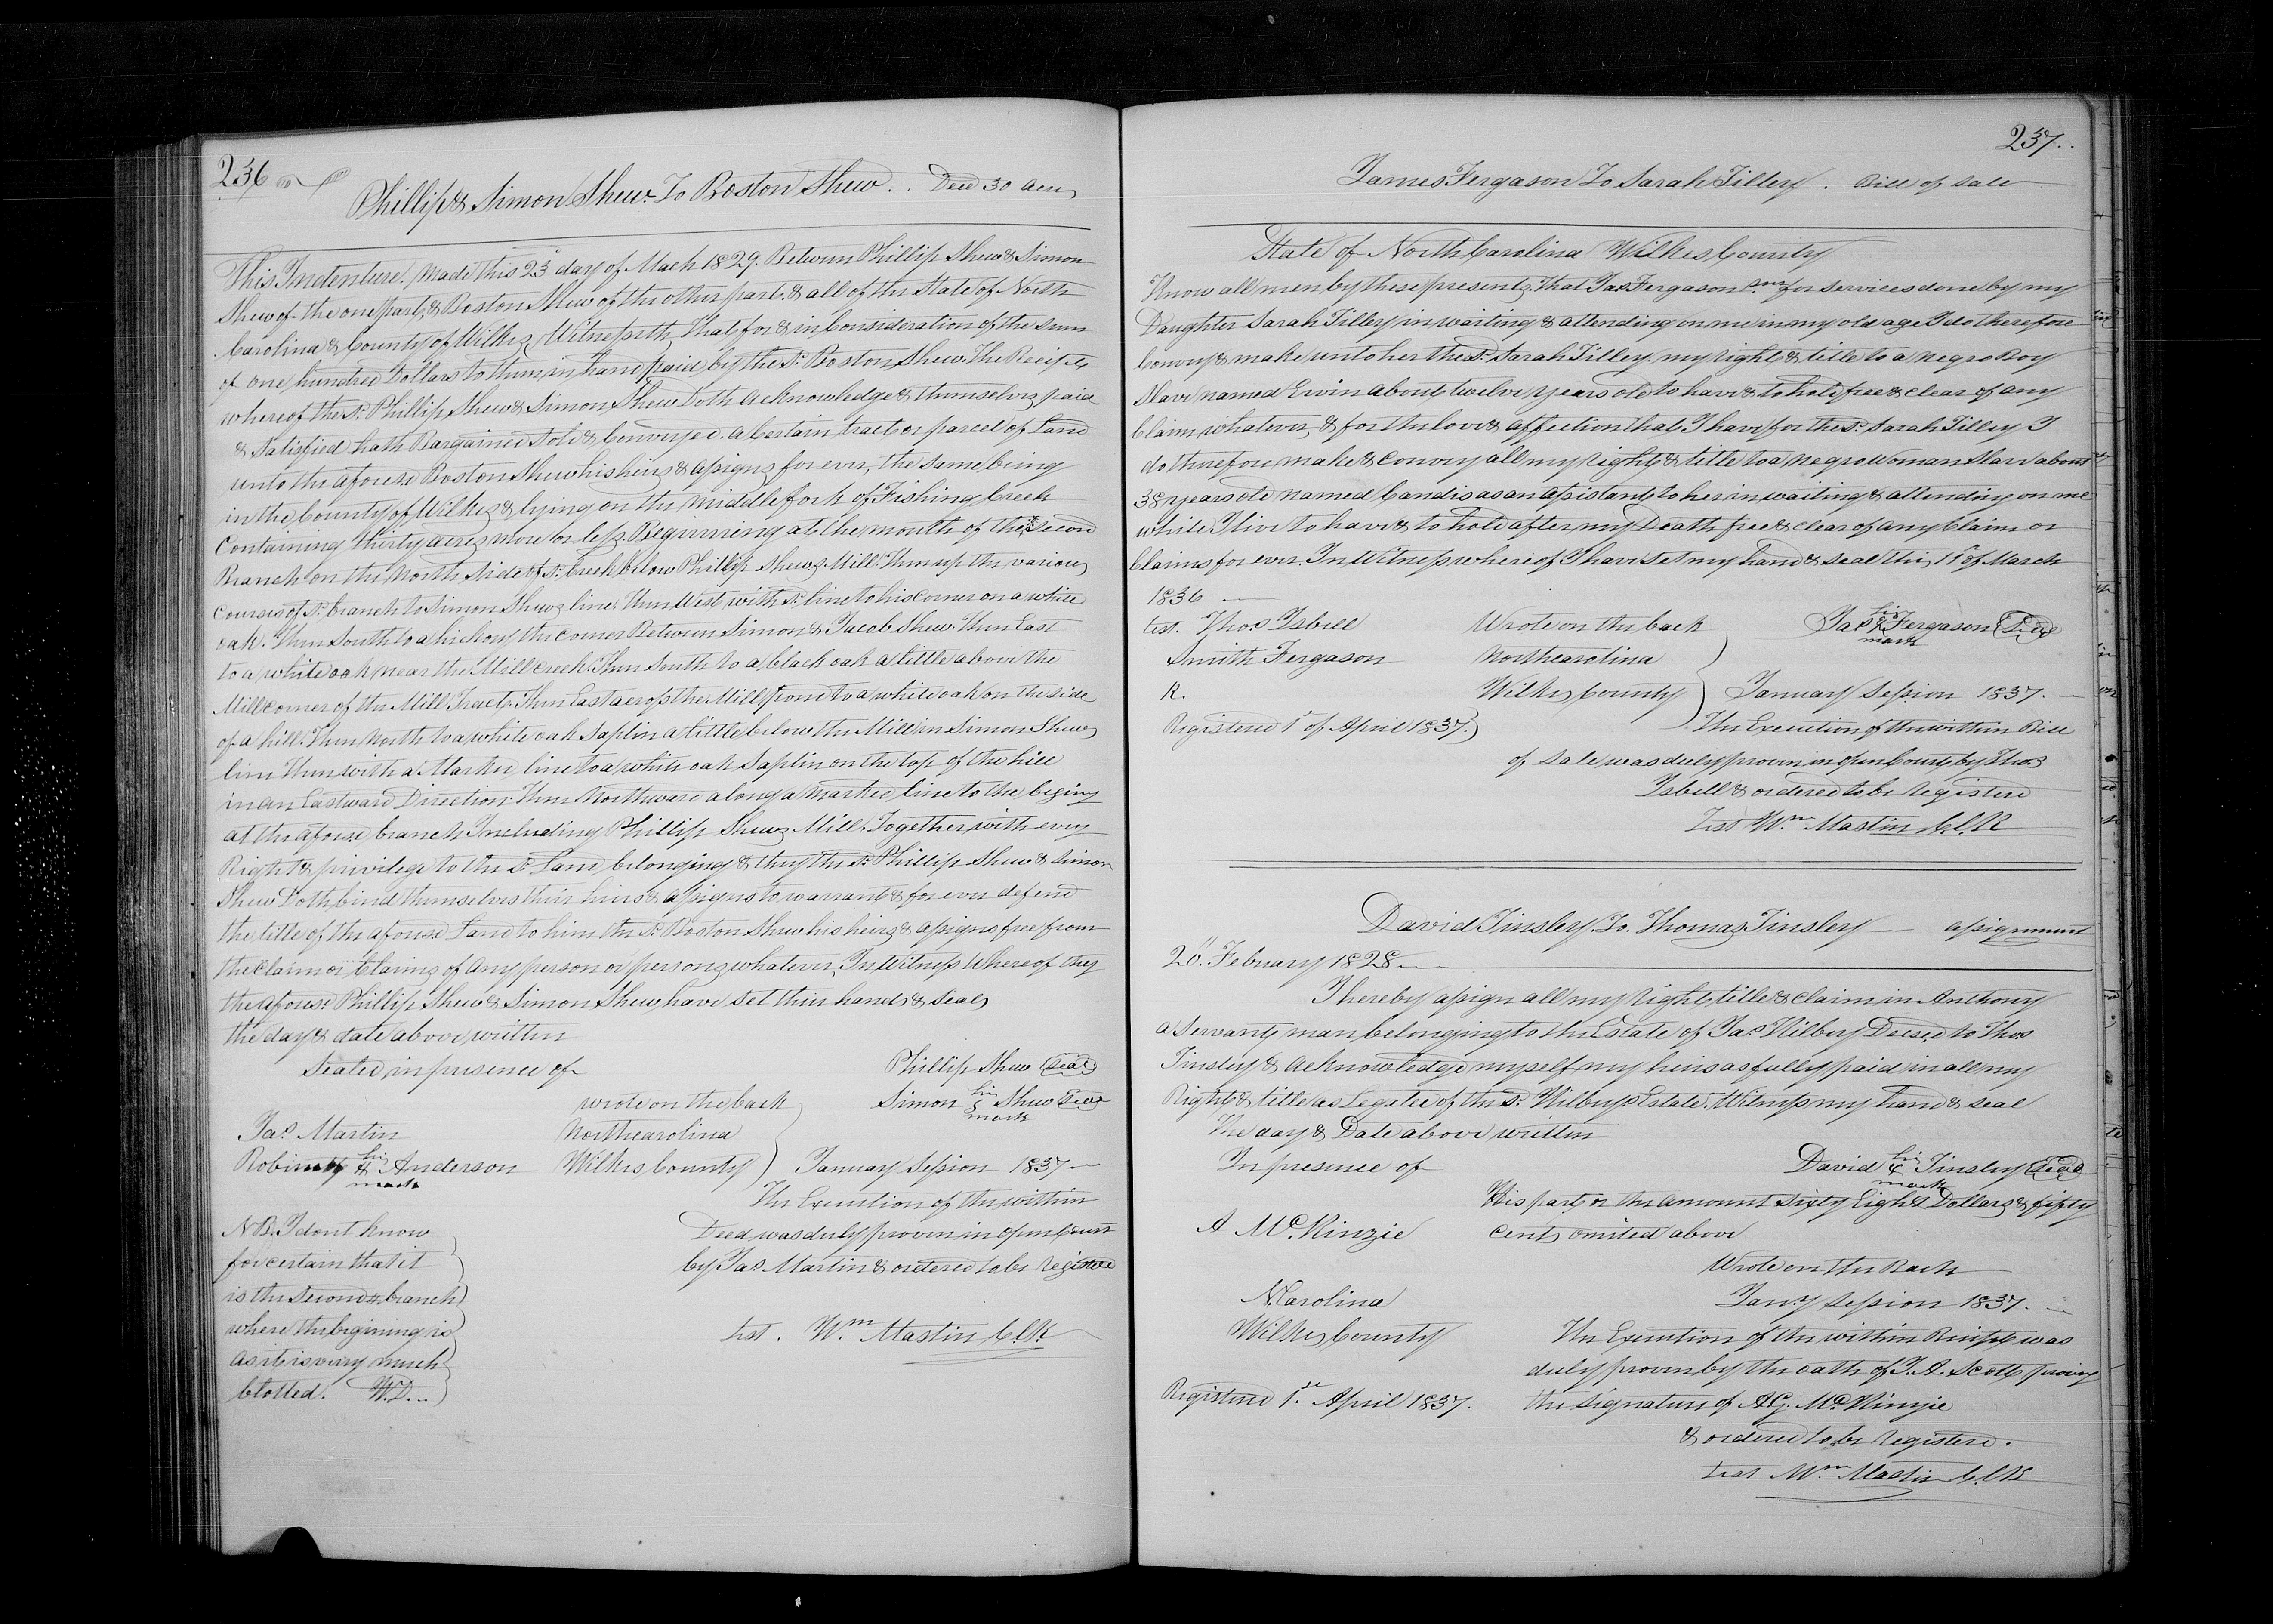 236
Phillip & Simon Shew To Boston Shew. . Deed 30 acres
This Indenture. Made this 23d day of Mach 1829. Between Phillip Shew & Simon
Shew of the one part, & Boston Shew of the other part. & all of the State of North
Carolina & County of Wilkes, Witnesseth, That for & in Consideration of the Sum
of one hundred Dollars to them, in hand paid by the sd. Boston Shew. The Receipt
whereof the sd. Phillip Shew & Simon Shew Doth acknowledge & themselves paid
& Satisfied hath Bargained Sold & Conveyed. a Certain tract or parcel of Land
unto the aforesd Boston Shew his heirs & assigns for ever, the same being
in the County of Wilkes & lying on the middle fork of Fishing Creek
Containing thirty acres more or less. Beginning at the mouth of the Second
Branch on the North Side of sd. Creek below Phillip Shews Mill. Then up the various
courses of sd. branch to Simon Shews line. Then West with sd. line to his corner on a white
oak. Then South to a hickory the corner Between Simon & Jacob Shew. Then East
to a white oak near the Mill creek Then South to a black oak a little above the
Mill corner of the Mill Tract. Then East across the Mill pond to a white oak on the side
of a hill. Then North to a white oak Saplin a little below the Mill in Simon Shews
line Then with a Marked line to a white oak Saplin on the top of the hill
in an Eastward Direction. Then Northward along a marked line to the beging
at the aforesd branch Including Phillip Shews Mill. Together with every
Right & privilege to the sd. Land belonging & they the sd. Phillip Shew & Simon
Shew Doth bind themselves their heirs & assigns to warrant & for ever defend
the title of the aforesd Land to him the sd. Boston Shew his heirs & assigns free from
the Claim or Claims of any person or persons whatever, In Witness Whereof they
the aforesd. Phillip Shew & Simon Shew have Set their hands & Seals
the day & date above written
Sealed in presence of
Phillip Shew Seal
wrote on the back
Simon his mark Shew Seal
Jas. Martin
Northcarolina
Robin his mark Anderson
Wilkes County
January Session 1837
The Execution of the within
Deed was duly proven in open Court
by Jas. Martin & ordered to be registerd
N B. I dont know
for certain that it
is the Second branch
where the begining is
as it is very much
blotted. W.D.
test. Wm. Mastin C.C.K
237.
James Fergason To Sarah Tilley. Bill of Sale
State of North Carolina Wilkes County
Know all men by these presents, That Jas Fergason Snr for Services done by my
Daughter Sarah Tilley in waiting & attending on me in my old age I do therefore
Convey & make unto her the sd. Sarah Tilley my right & title to a negro Boy
Slave named Ervin about twelve years old to have & to hold free & clear of any
Claim whatever, & for the love & affection that I have for the sd. Sarah Tilley I
do therefore make & convey all my right & title to a negro Woman Slave about
38 years old named Candis as an assistant to her in waiting & attending on me
while I live to have & to hold after my Death free & clear of any Claim or
Claims for ever. In Witness where of I have Set my hand & seal this 11th of March
1836
test. Thos Isbell
Wrote on the back
Jas his mark Fergason Seal
Smith Fergason
Northcarolina
R.
Wilkes County
January Session 1837.
Registered 1st of April 1837.
The Execution of the within Bill
of Sale was duly proven in open Court by Thos
Isbell & ordered to be Registerd
Test Wm. Mastin C.C.K
David Tinsley To Thomas Tinsley assignment
20th. February 1828
I hereby assign all my right title & claim in Anthony
a Servant, man belonging to the Estate of Jas Wilbey Decsed to Thos
Tinsley & acknowledge myself my heirs as fully paid in all my
Right & title as Legatee of the sd. Wilbeys Estate. Witness my hand & seal
The day & Date above written
In presence of
David his mark Tinsley Seal
His part or the amount Sixty Eight Dollars & fifty
A McKinzie
cents omited above
Wrote on the Back
N.Carolina
Jany Session 1837.
Wilkes County
The Execution of the within Receipt was
duly proven by the oath of J. A. Scott proving
Registered 1st. April 1837.
the Signature of A G. McKinzie
& ordered to be Registerd.
test Wm. Mastin C.C.K